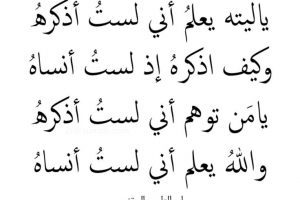 ياليته يعلمُ أني لستُ أذكرهُ
وكيف اذكرهُ إذ لستُ أنساهُ
يامَن توهم أني لستُ أذكرهُ
واللهُ يعلم أني لستُ أنساهُ